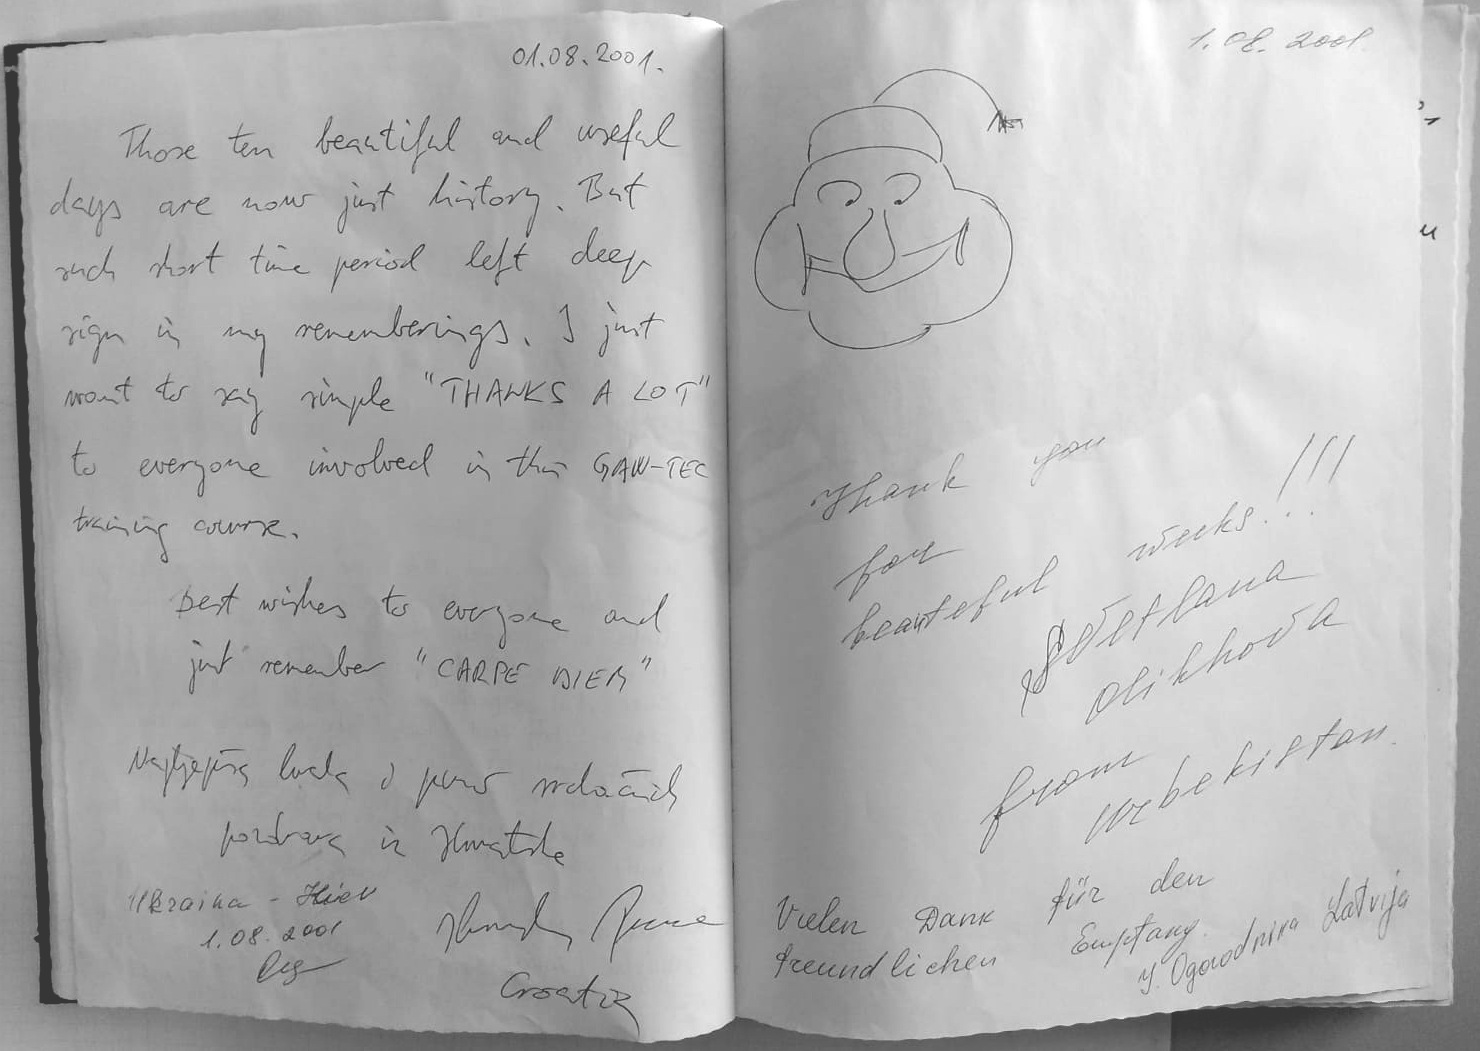 01.08.2001.
Those ten beautiful and useful
days are now just history. But
such short time period left deep
sign in my rememberings. I just
want to say simple "THANKS A LOT"
to everyone involved in this GAW-TEC
training course.
Best wishes to everyone and
just remember "CARPE DIEM"
Najljepša hvala i puno srdačnih
pozdrava iz Hrvatske
Ukraina - Kiev
1.08.2001
Croatia
1.08.2001
Thank you
for
beauteful weeks!!!
Svetlana
Olikhova
from
Uzbekistan.
Vielen Dank für den
freundlichen Empfang.
I. Ogorodnira Latvija